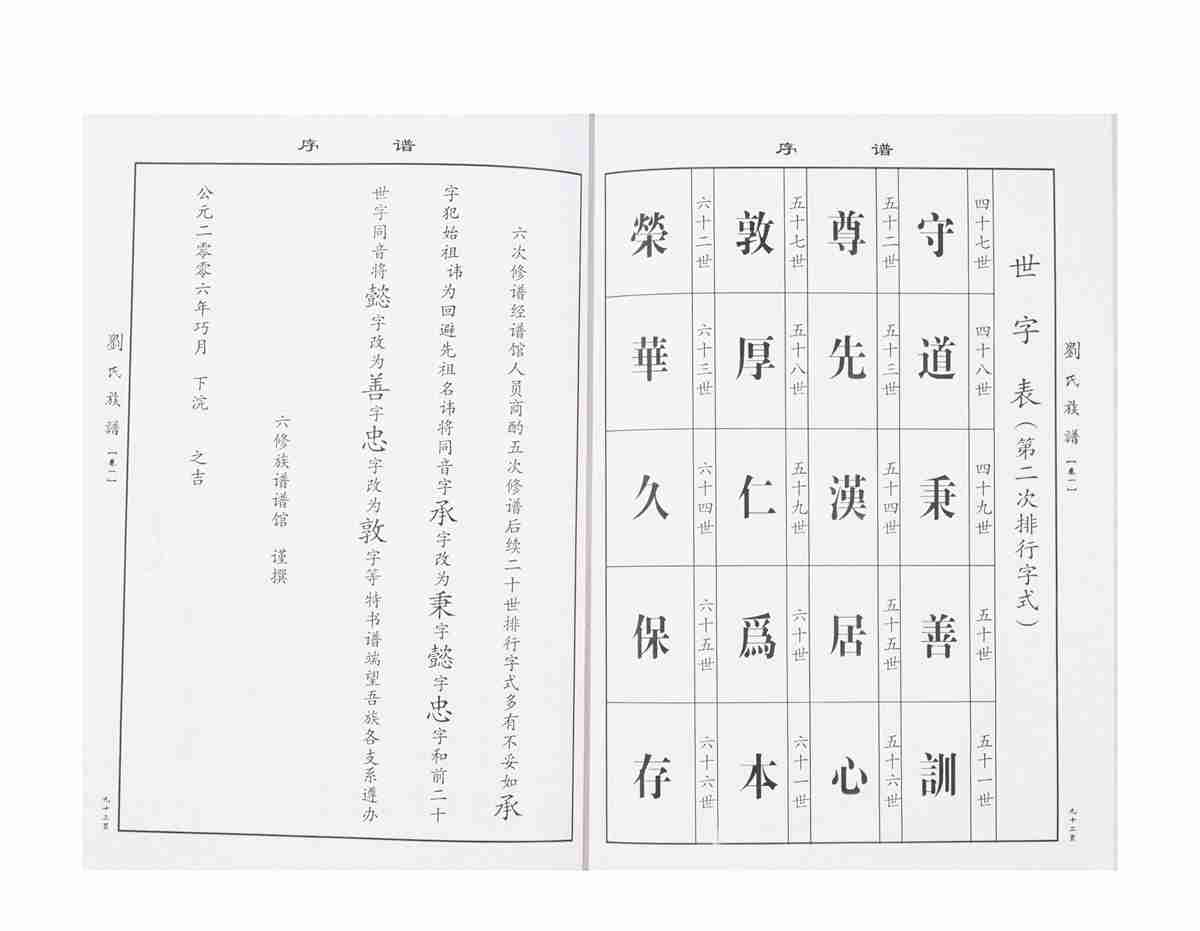 谱序
劉氏族譜【卷一】
世字表（第二次排行字式）
四十七世 四十八世 四十九世 五十世 五十一世
守 道 秉 善 訓
五十二世 五十三世 五十四世 五十五世 五十六世
尊 先 漢 居 心
五十七世 五十八世 五十九世 六十世 六十一世
敦 厚 仁 爲 本
六十二世 六十三世 六十四世 六十五世 六十六世
榮 華 久 保 存
谱序
六次修谱经谱馆人员商酌五次修谱后续二十世排行字式多有不妥如承
字犯始祖讳为回避先祖名讳将同音字承字改为秉字懿字忠字和前二十
世字同音将懿字改为善字忠字改为敦字等特书谱端望吾族各支系遵办
六修族谱谱馆 谨撰
公元二零零六年巧月 下浣 之吉
劉氏族譜【卷一】